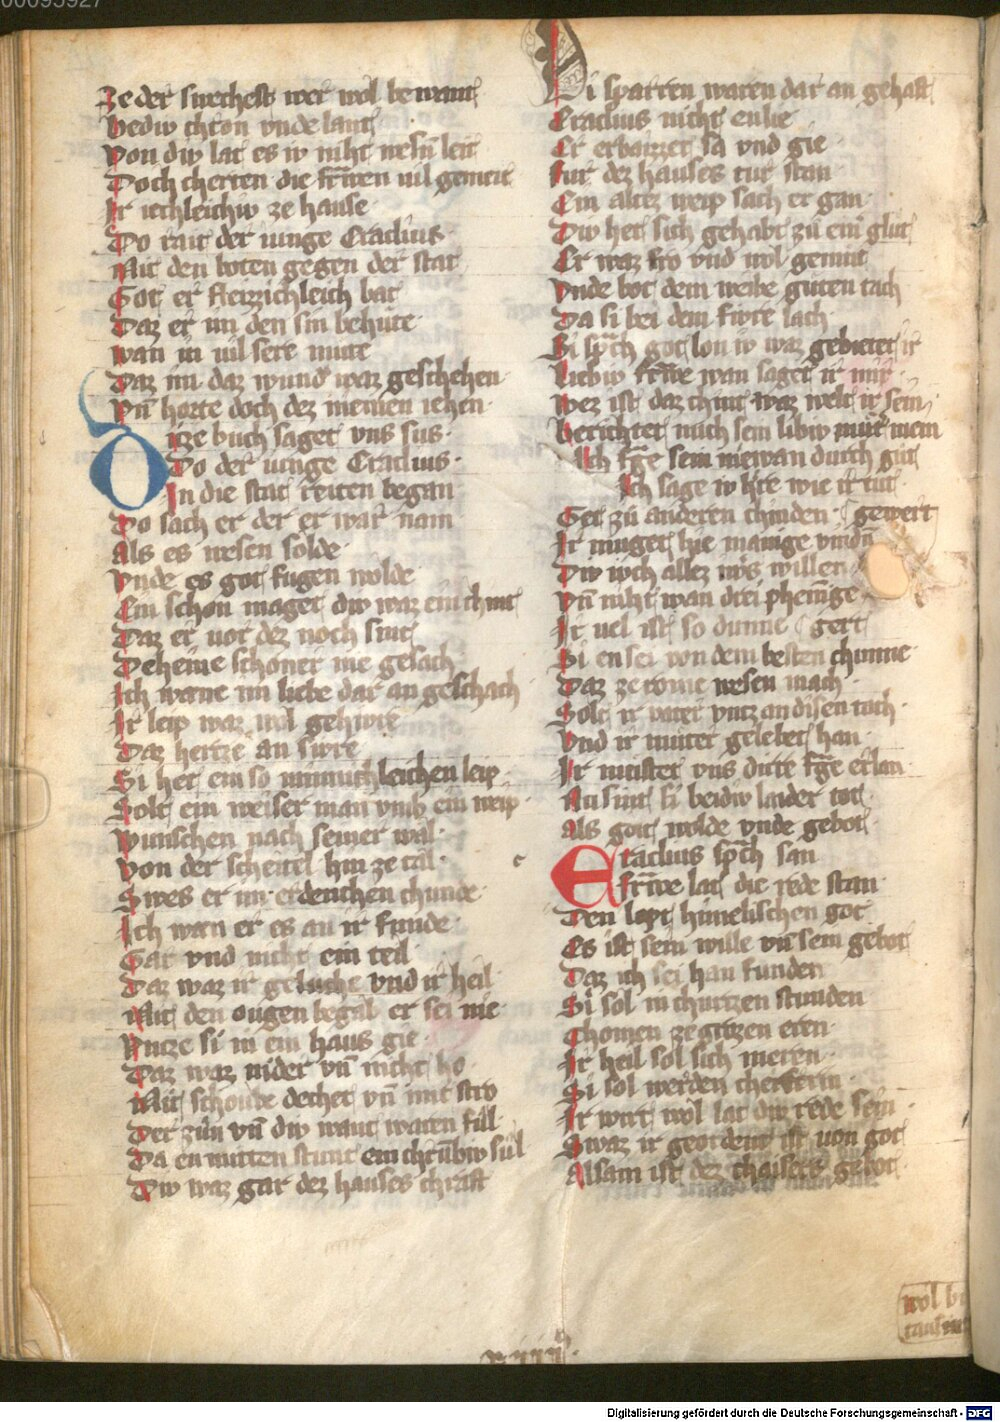 00095927
Ze der swechest wer wol bewant
Bediw chron vnde lant
Von div lat es iv niht wesn leit
Doch cherten die frŵen vil gemeit
Ir iechleichiv ze hause
Do rait der iunge Eraclius
Mit den boten gegen der stat
Got er fleizzichleich bat
Daz er im den sin behute
wan in vil sere mute
Daz im daz wund̾ waz geschehen
Vn̄ horte doch dez iemen iehen
Ditze buch saget vns sus
Do der iunge Eraclius
In die stat reiten began
Do sach er der er war nam
Als es wesen solde
Vnde es got fugen wolde
Ein schon maget div waz ein chint
Daz er vor dez noch sint
Deheine schoner nie gesach
Ich wæne im liebe dar an geschach
Ir leip waz wol gehiwre
Daz hertze an siwre
Si het ein so minnichleichen leip
Solt ein weiser man vmb ein weip
wunschen nach seiner wal
Von der scheitel hin ze tal
Swes er im erdenchen chunde
Ich wæn er es an ir funde
Gar vnd nicht ein teil
Daz waz ir geluche vnd ir heil
Mit den ougen begab er sei nie
Vntze si in ein haus gie
Daz waz nider vn̄ nicht ho
Mit schoube dechet vn̄ mit stro
Der zun vn̄ div want waren ful
Da en mitten stunt ein chrūbiv sul
Div waz gar dez hauses chraft
Di sparren waren dar an gehaft
Eraclius nicht enlie
Er erbaizzet sa vnd gie
Fur dez hauses tur stan
Ein altez weip sach er gan
Div het sich gehabt zu ein̾ glut
Er waz fro vnd wol gemut
Vnde bot dem weibe guten tach
Da si bei dem fiwre sach
Si sp̾ch got lon iv waz gebietet ir
Liebiv frŵe wan saget ir mir
wez ist daz chint waz welt ir sein
Berichtet mich sein libiv mut̾ mein
Ich frage sein niewan durch gut
Ich sage iv h̾re wie ir tut
Get zu anderen chinden
gewert
Ir muget hie manige vinden
Div iwch allez iwers willen
Vn̄ niht wan drei phenīge
Ir vel ist so dunne
gert
Si en sei von dem besten chunne
Daz ze rome wesen mach
Solt ir vater vntz an disen tach
Vnd ir muter gelebet han
Ir mustet vns dirre frage erlan
Nu sint si beidiv laider tot
Als got wolde vnde gebot
Eraclius sp̾ch san
frŵe lat die rede stan
Den lept himelischen got
Es ist sein wille vn̄ sein gebot
Daz ich sei han funden
Si sol in churtzen stunden
Chomen ze grozen eren
Ir heil sol sich meren
Si sol werden cheiserin
Ir wirt wol lat div rede sein
Swaz ir geordent ist von got
Alsam ist dez chaisers gebot
wol b
Digitalisierung gefördert durch die Deutsche Forschungsgemeinschaft - DFG